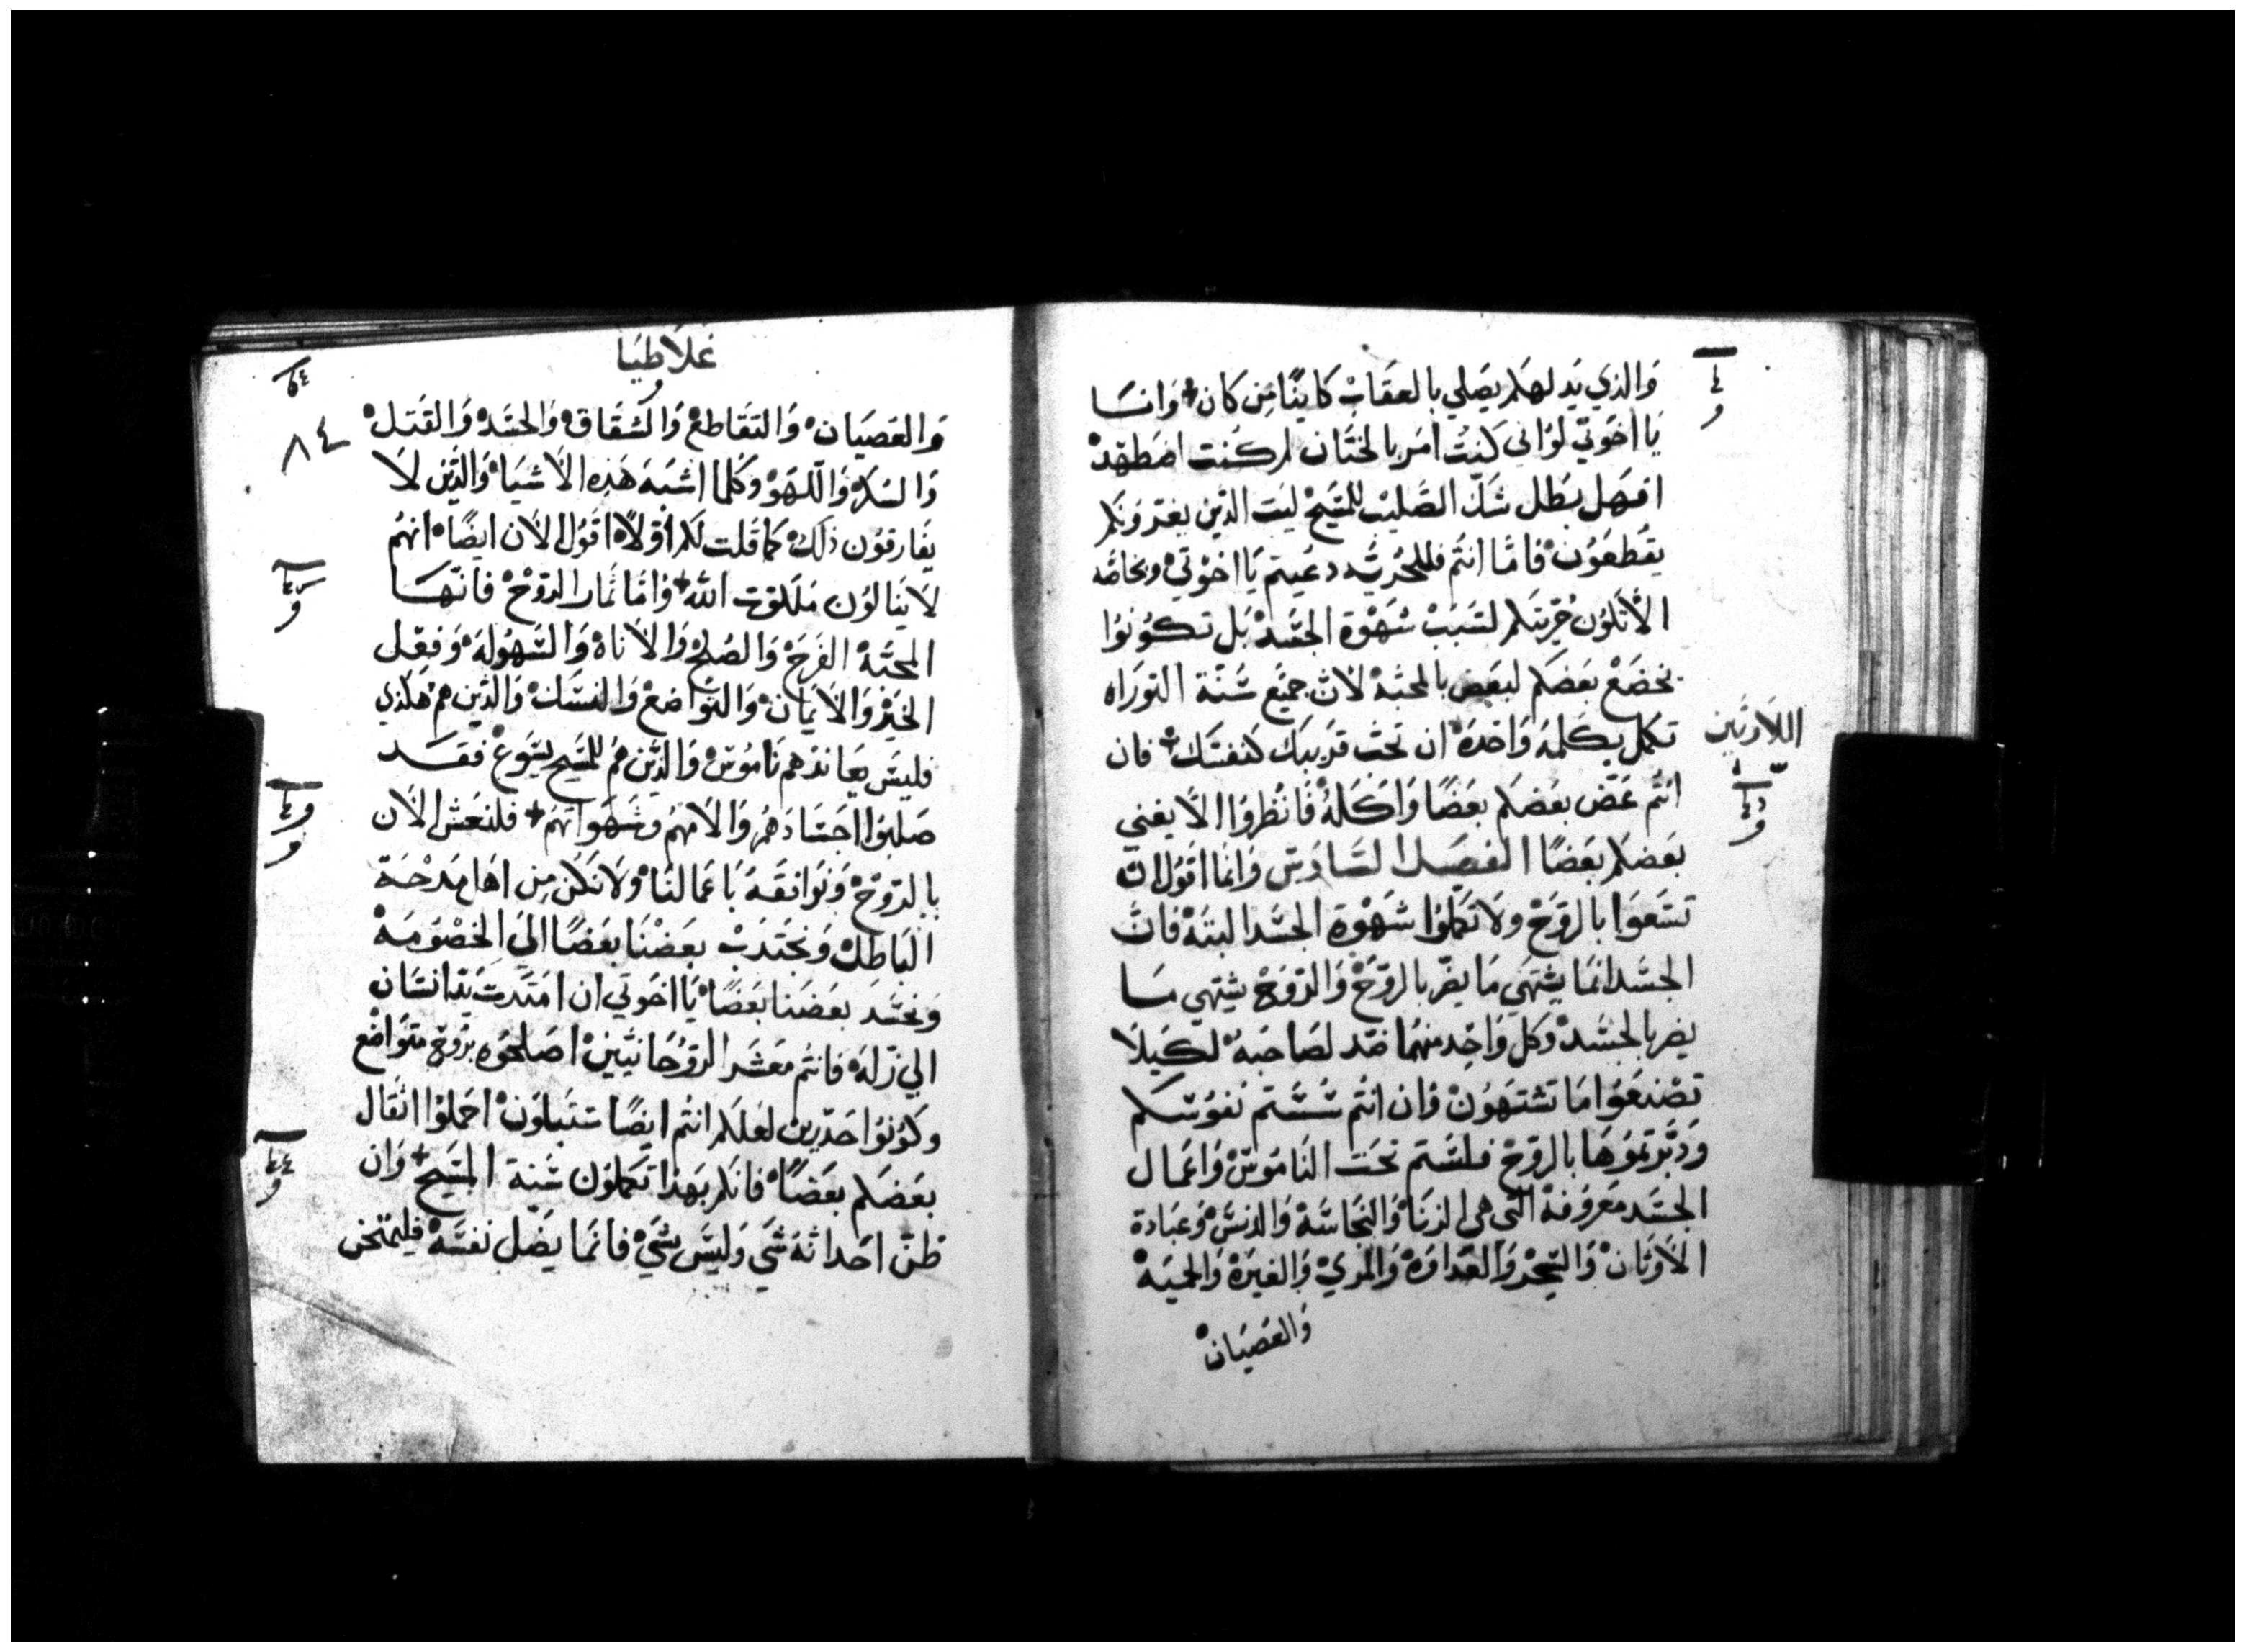 والذي يدلهلم يصلي بالعقاب كاينًا من كان + وانسا
يا اخوتي لو اني كنت امر بالختان لم كنت اضطهد
افهل بطل شك الصليب للمسيح ليت الذين يغيرونكم
يقطعون فاما انتم فللحرية دعيتم يا اخوتي وبخاصه
الا تكون حريتكم لسبب شهوة الجسد بل تكونوا
يخضع بعضكم لبعض بالمحبة لان جميع سنة التوراه
تكمل بكلمة واحدة ان تحب قريبك كنفسك + فان
اللاوتين
انتم عض بعضكم بعضا واكله فانظروا الا يفني
بعضكم بعضا الفصل السادس وانما اقول ان
تسعوا بالروح ولا تكملوا شهوة الجسد البتة فان
الجسد انما يشتهي ما يضر بالروح والروح يشتهي ما
يضر بالجسد وكل واحد منهما ضد لصاحبه لكيلا
تصنعوا ما تشتهون وان انتم سستم نفوسكم
ودبرتموها بالروح فلستم تحت الناموس واعمال
الجسد معروفة التي هي الزنا والنجاسة والدنس وعبادة
الاوثان والسحر والعداوة والمري والغيرة والحمية
والعصيان
غلاطيا
٨٤
والعصيان والتقاطع والشقاق والحسد والقتل
والسكر واللهو وكلما اشبه هذه الاشيا والذين لا
يفارقون ذلك كما قلت لكم اولا اقول الان ايضا انهم
لا ينالون ملكوت الله + واما ثمار الروح فانها
المحبة الفرح والصلح والاناة والسهولة وفعل
الخير والايمان والتواضع والنسك والذين هم هكذي
فليس يعاندهم ناموس والذين هم للمسيح يسوع فقد
صلبوا اجسادهم والامهم وشهواتهم + فلنعش الان
بالروح ونوافقه باعمالنا ولا نكن من اهل مدحة
الباطل ونجتدب بعضنا بعضا الي الخصومة
ونحسد بعضنا بعضا يا اخوتي ان امتدت يد انسان
الي زلة فانتم معشر الروحانيين اصلحوه بروح متواضع
وكونوا حذرين لعلكم انتم ايضا ستبتلون احملوا اثقال
بعضكم بعضا فانكم بهذا تكملون سنة المسيح + وان
ظن احد انه شي وليس بشي فانما يضل نفسه فليمتحن